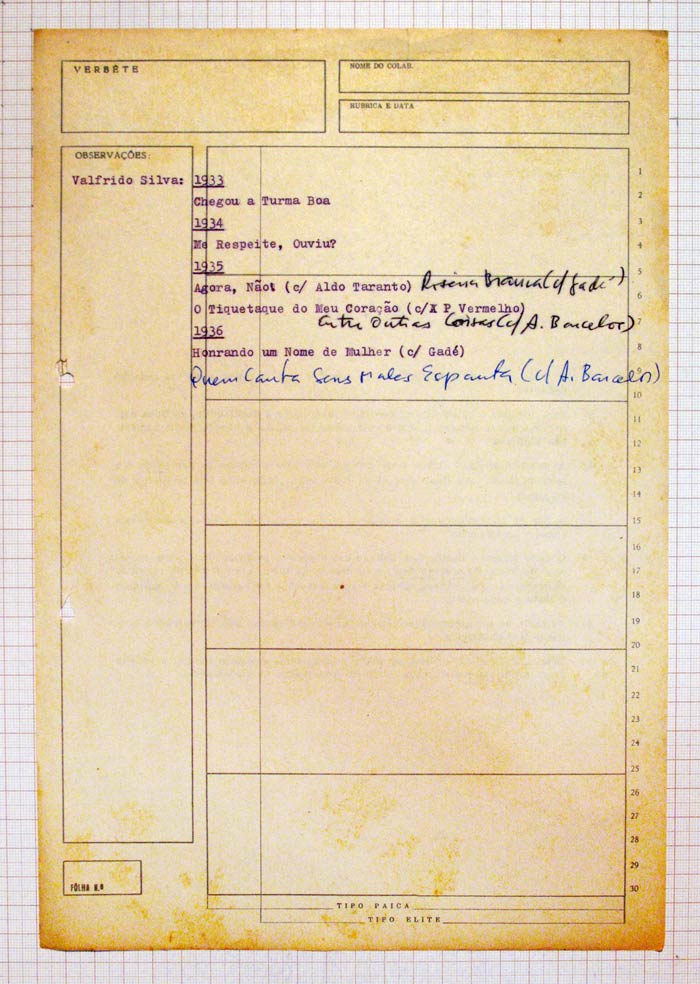 VERBÊTE
NOME DO COLAB.
RUBRICA E DATA
OBSERVAÇÕES:
Valfrido Silva: 1933
Chegou a Turma Boa
1934
Me Respeite, Ouviu?
1935
Agora, Não! (c/ Aldo Taranto) Branca (c/ Gadé)
O Tiquetaque do Meu Coração (c/X P Vermelho)
Entre Outras Coisas (c/ A. Barcelos)
1936
Honrando um Nome de Mulher (c/ Gadé)
Quem Canta Seus Males Espanta (c/ A. Barcelos)
1
2
3
4
5
6
7
8
9
10
11
12
13
14
15
16
17
18
19
20
21
22
23
24
25
26
27
28
29
30
FÔLHA N.º
TIPO PAICA
TIPO ELITE